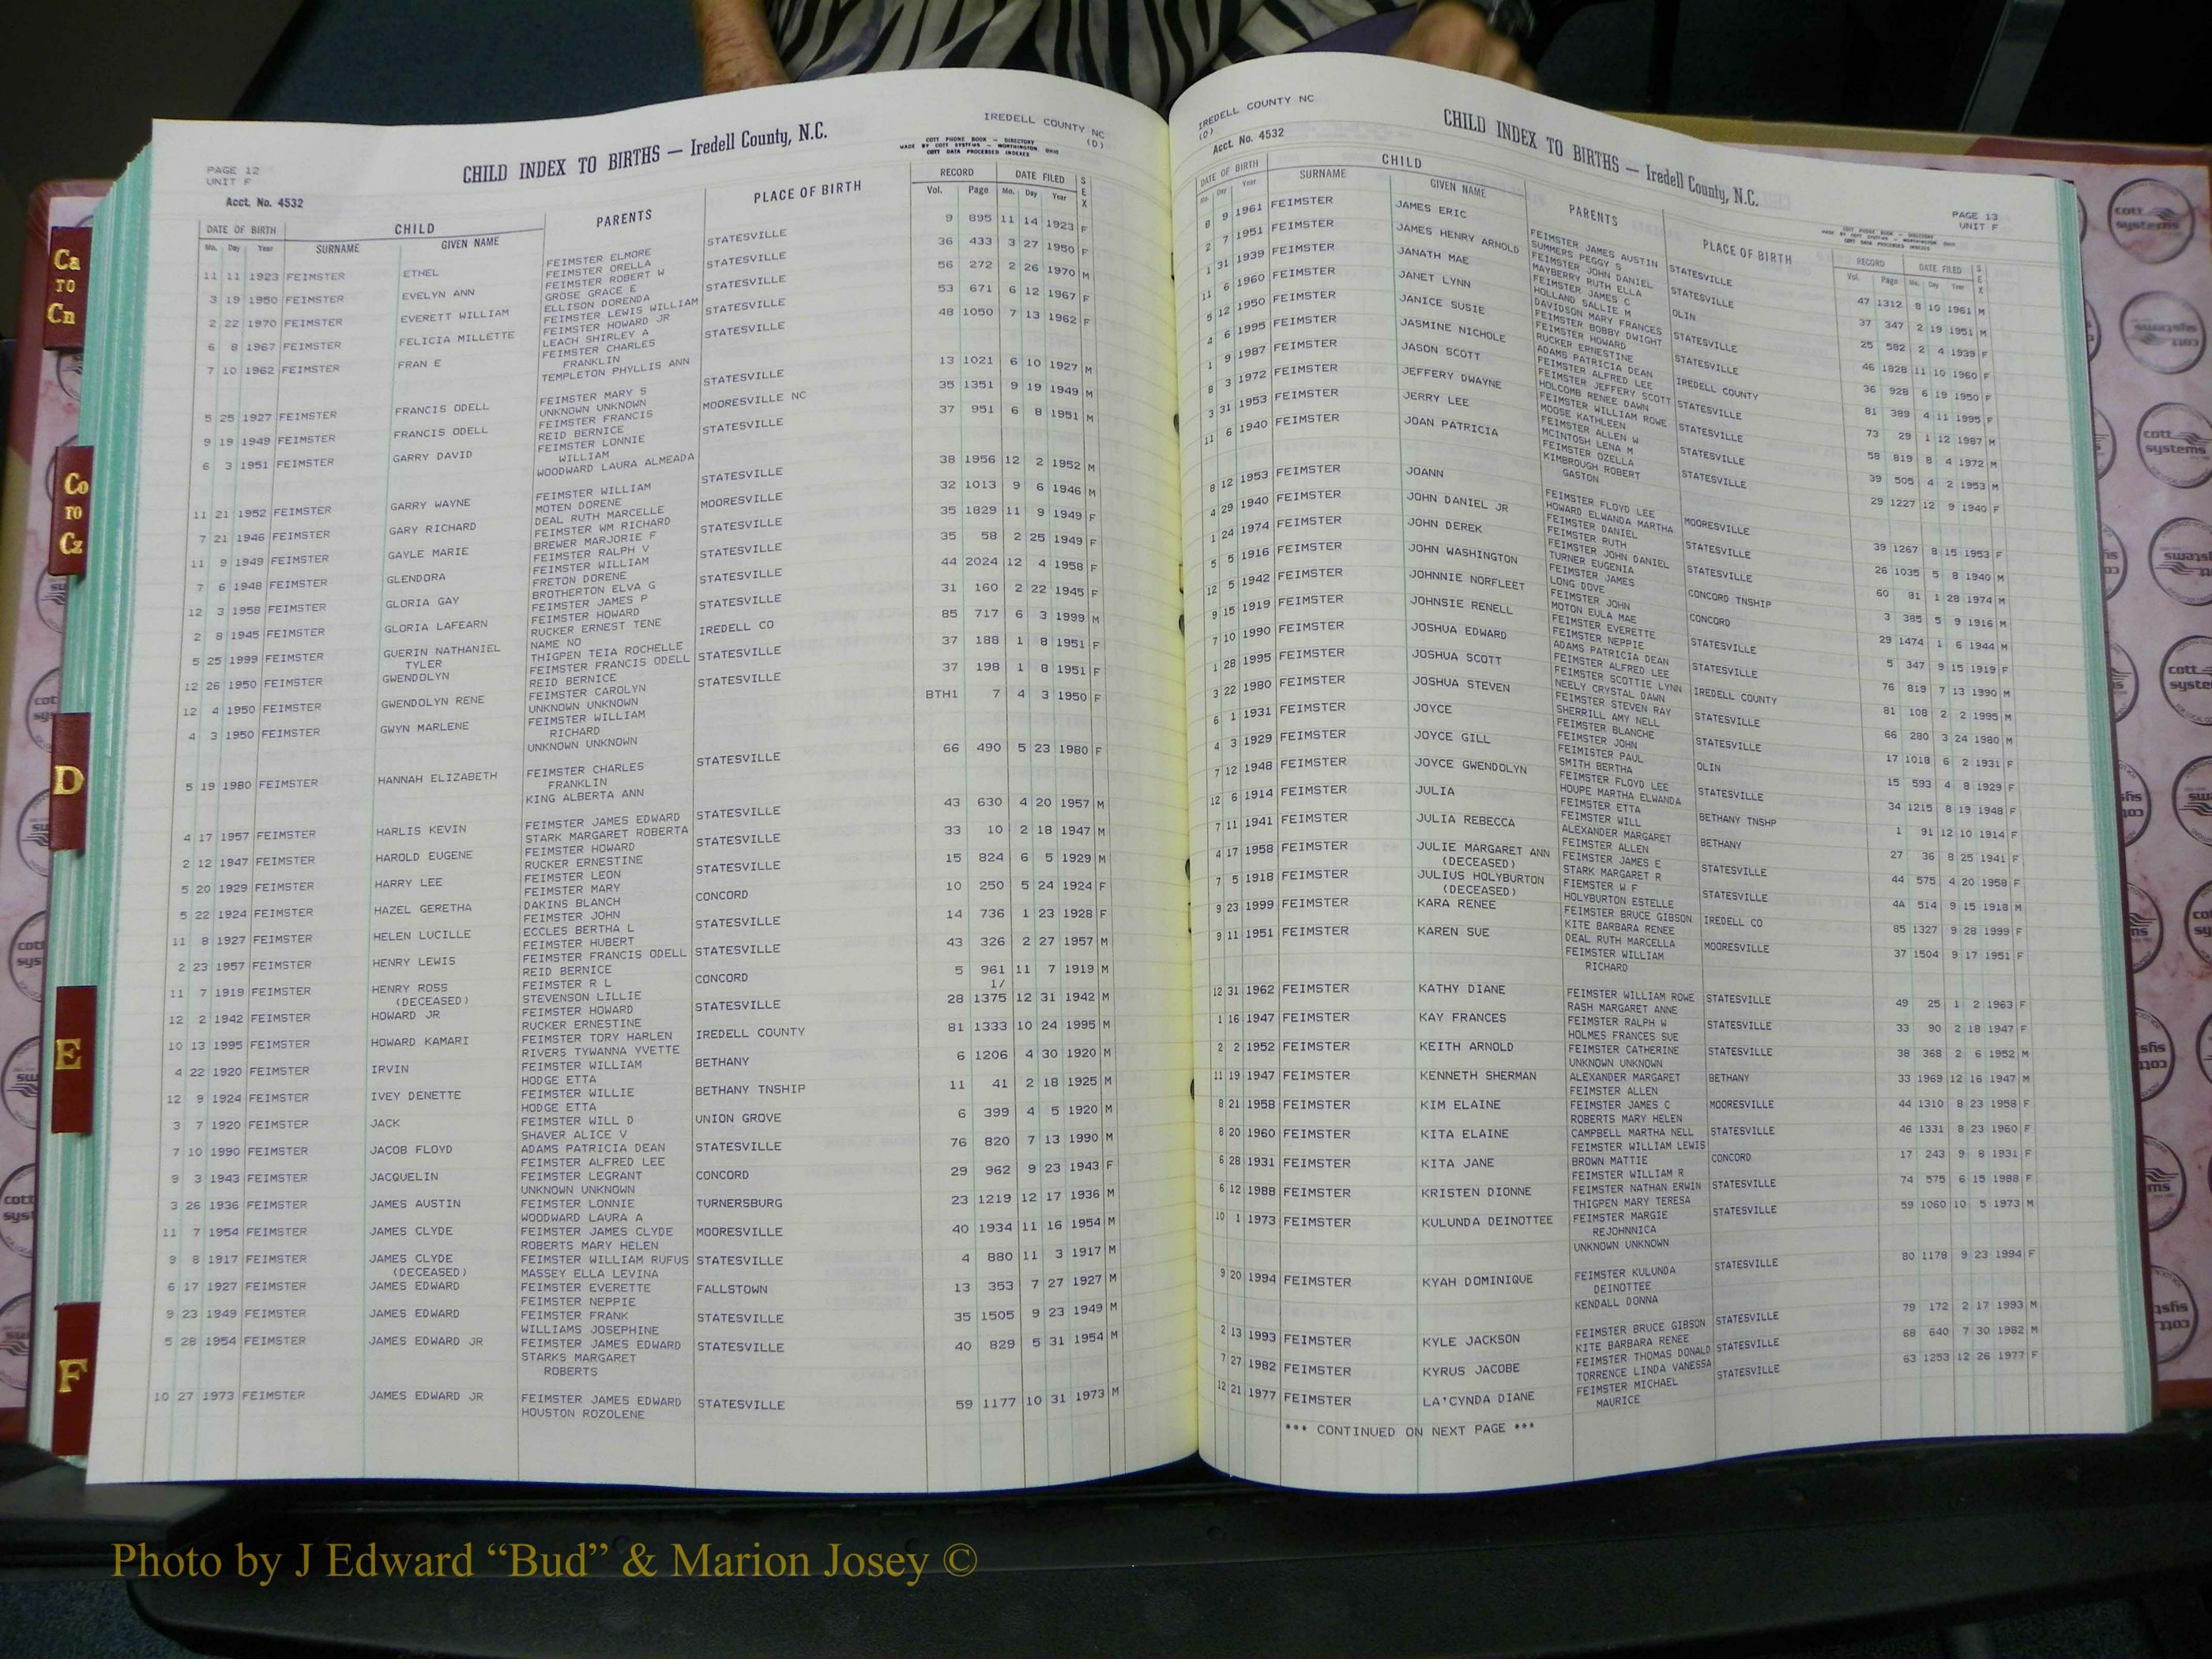 IREDELL COUNTY NC
(D)
CHILD INDEX TO BIRTHS — Iredell County, N.C.
COTT PHONE BOOK — DIRECTORY
MADE BY COTT SYSTEMS — WORTHINGTON, OHIO
COTT DATA PROCESSED INDEXES
PAGE 12
UNIT F
Acct. No. 4532
DATE OF BIRTH CHILD PARENTS PLACE OF BIRTH RECORD DATE FILED SEX
Mo. Day Year SURNAME GIVEN NAME Vol. Page Mo. Day Year
11 11 1923 FEIMSTER ETHEL FEIMSTER ELMORE STATESVILLE 9 895 11 14 1923 F
FEIMSTER ORELLA
3 19 1950 FEIMSTER EVELYN ANN FEIMSTER ROBERT W STATESVILLE 36 433 3 27 1950 F
GROSE GRACE E
2 22 1970 FEIMSTER EVERETT WILLIAM ELLISON DORENDA STATESVILLE 56 272 2 26 1970 M
FEIMSTER LEWIS WILLIAM
6 8 1967 FEIMSTER FELICIA MILLETTE FEIMSTER HOWARD JR STATESVILLE 53 671 6 12 1967 F
LEACH SHIRLEY A
7 10 1962 FEIMSTER FRAN E FEIMSTER CHARLES STATESVILLE 48 1050 7 13 1962 F
FRANKLIN
TEMPLETON PHYLLIS ANN
5 25 1927 FEIMSTER FRANCIS ODELL FEIMSTER MARY S STATESVILLE 13 1021 6 10 1927 M
UNKNOWN UNKNOWN
9 19 1949 FEIMSTER FRANCIS ODELL FEIMSTER FRANCIS MOORESVILLE NC 35 1351 9 19 1949 M
REID BERNICE
6 3 1951 FEIMSTER GARRY DAVID FEIMSTER LONNIE STATESVILLE 37 951 6 8 1951 M
WILLIAM
WOODWARD LAURA ALMEADA
11 21 1952 FEIMSTER GARRY WAYNE FEIMSTER WILLIAM STATESVILLE 38 1956 12 2 1952 M
MOTEN DORENE
7 21 1946 FEIMSTER GARY RICHARD DEAL RUTH MARCELLE MOORESVILLE 32 1013 9 6 1946 M
FEIMSTER WM RICHARD
11 9 1949 FEIMSTER GAYLE MARIE BREWER MARJORIE F STATESVILLE 35 1829 11 9 1949 F
FEIMSTER RALPH V
7 6 1948 FEIMSTER GLENDORA FEIMSTER WILLIAM STATESVILLE 35 58 2 25 1949 F
FRETON DORENE
12 3 1958 FEIMSTER GLORIA GAY BROTHERTON ELVA G STATESVILLE 44 2024 12 4 1958 F
FEIMSTER JAMES P
2 8 1945 FEIMSTER GLORIA LAFEARN FEIMSTER HOWARD STATESVILLE 31 160 2 22 1945 F
RUCKER ERNEST TENE
5 25 1999 FEIMSTER GUERIN NATHANIEL NAME NO IREDELL CO 85 717 6 3 1999 M
TYLER THIGPEN TEIA ROCHELLE
12 26 1950 FEIMSTER GWENDOLYN FEIMSTER FRANCIS ODELL STATESVILLE 37 188 1 8 1951 F
REID BERNICE
12 4 1950 FEIMSTER GWENDOLYN RENE FEIMSTER CAROLYN STATESVILLE 37 198 1 8 1951 F
UNKNOWN UNKNOWN
4 3 1950 FEIMSTER GWYN MARLENE FEIMSTER WILLIAM BTH1 7 4 3 1950 F
RICHARD
UNKNOWN UNKNOWN
5 19 1980 FEIMSTER HANNAH ELIZABETH FEIMSTER CHARLES STATESVILLE 66 490 5 23 1980 F
FRANKLIN
KING ALBERTA ANN
4 17 1957 FEIMSTER HARLIS KEVIN FEIMSTER JAMES EDWARD STATESVILLE 43 630 4 20 1957 M
STARK MARGARET ROBERTA
2 12 1947 FEIMSTER HAROLD EUGENE FEIMSTER HOWARD STATESVILLE 33 10 2 18 1947 M
RUCKER ERNESTINE
5 20 1929 FEIMSTER HARRY LEE FEIMSTER LEON STATESVILLE 15 824 6 5 1929 M
FEIMSTER MARY
5 22 1924 FEIMSTER HAZEL GERETHA DAKINS BLANCH CONCORD 10 250 5 24 1924 F
FEIMSTER JOHN
11 8 1927 FEIMSTER HELEN LUCILLE ECCLES BERTHA L STATESVILLE 14 736 1 23 1928 F
FEIMSTER HUBERT
2 23 1957 FEIMSTER HENRY LEWIS FEIMSTER FRANCIS ODELL STATESVILLE 43 326 2 27 1957 M
REID BERNICE
11 7 1919 FEIMSTER HENRY ROSS FEIMSTER R L CONCORD 5 961 11 7 1919 M
(DECEASED) STEVENSON LILLIE 1/
12 2 1942 FEIMSTER HOWARD JR FEIMSTER HOWARD STATESVILLE 28 1375 12 31 1942 M
RUCKER ERNESTINE
10 13 1995 FEIMSTER HOWARD KAMARI FEIMSTER TORY HARLEN IREDELL COUNTY 81 1333 10 24 1995 M
RIVERS TYWANNA YVETTE
4 22 1920 FEIMSTER IRVIN FEIMSTER WILLIAM BETHANY 6 1206 4 30 1920 M
HODGE ETTA
12 9 1924 FEIMSTER IVEY DENETTE FEIMSTER WILLIE BETHANY TNSHIP 11 41 2 18 1925 M
HODGE ETTA
3 7 1920 FEIMSTER JACK FEIMSTER WILL D UNION GROVE 6 399 4 5 1920 M
SHAVER ALICE V
7 10 1990 FEIMSTER JACOB FLOYD ADAMS PATRICIA DEAN STATESVILLE 76 820 7 13 1990 M
FEIMSTER ALFRED LEE
9 3 1943 FEIMSTER JACQUELIN FEIMSTER LEGRANT CONCORD 29 962 9 23 1943 F
UNKNOWN UNKNOWN
3 26 1936 FEIMSTER JAMES AUSTIN FEIMSTER LONNIE TURNERSBURG 23 1219 12 17 1936 M
WOODWARD LAURA A
11 7 1954 FEIMSTER JAMES CLYDE FEIMSTER JAMES CLYDE MOORESVILLE 40 1934 11 16 1954 M
ROBERTS MARY HELEN
9 8 1917 FEIMSTER JAMES CLYDE FEIMSTER WILLIAM RUFUS STATESVILLE 4 880 11 3 1917 M
(DECEASED) MASSEY ELLA LEVINA
6 17 1927 FEIMSTER JAMES EDWARD FEIMSTER EVERETTE FALLSTOWN 13 353 7 27 1927 M
FEIMSTER NEPPIE
9 23 1949 FEIMSTER JAMES EDWARD FEIMSTER FRANK STATESVILLE 35 1505 9 23 1949 M
WILLIAMS JOSEPHINE
5 28 1954 FEIMSTER JAMES EDWARD JR FEIMSTER JAMES EDWARD STATESVILLE 40 829 5 31 1954 M
STARKS MARGARET
ROBERTS
10 27 1973 FEIMSTER JAMES EDWARD JR FEIMSTER JAMES EDWARD STATESVILLE 59 1177 10 31 1973 M
HOUSTON ROZOLENE
IREDELL COUNTY NC
(D)
Acct. No. 4532
CHILD INDEX TO BIRTHS — Iredell County, N.C.
PAGE 13
UNIT F
DATE OF BIRTH CHILD PARENTS PLACE OF BIRTH RECORD DATE FILED SEX
Mo. Day Year SURNAME GIVEN NAME Vol. Page Mo. Day Year
8 9 1961 FEIMSTER JAMES ERIC FEIMSTER JAMES AUSTIN STATESVILLE 47 1312 8 10 1961 M
SUMMERS PEGGY S
2 7 1951 FEIMSTER JAMES HENRY ARNOLD FEIMSTER JOHN DANIEL STATESVILLE 37 347 2 19 1951 M
MAYBERRY RUTH ELLA
1 31 1939 FEIMSTER JANATH MAE FEIMSTER JAMES C OLIN 25 582 2 4 1939 F
HOLLAND SALLIE M
11 6 1960 FEIMSTER JANET LYNN DAVIDSON MARY FRANCES STATESVILLE 46 1828 11 10 1960 F
FEIMSTER BOBBY DWIGHT
5 12 1950 FEIMSTER JANICE SUSIE FEIMSTER HOWARD STATESVILLE 36 928 6 19 1950 F
RUCKER ERNESTINE
4 6 1995 FEIMSTER JASMINE NICHOLE ADAMS PATRICIA DEAN IREDELL COUNTY 81 389 4 11 1995 F
FEIMSTER ALFRED LEE
1 9 1987 FEIMSTER JASON SCOTT FEIMSTER JEFFERY SCOTT STATESVILLE 73 29 1 12 1987 M
HOLCOMB RENEE DAWN
8 3 1972 FEIMSTER JEFFERY DWAYNE FEIMSTER WILLIAM ROWE STATESVILLE 58 819 8 4 1972 M
MOOSE KATHLEEN
3 31 1953 FEIMSTER JERRY LEE FEIMSTER ALLEN W STATESVILLE 39 505 4 2 1953 M
MCINTOSH LENA M
11 6 1940 FEIMSTER JOAN PATRICIA FEIMSTER OZELLA STATESVILLE 29 1227 12 9 1940 F
KIMBROUGH ROBERT
GASTON
8 12 1953 FEIMSTER JOANN FEIMSTER FLOYD LEE MOORESVILLE 39 1267 8 15 1953 F
HOWARD ELWANDA MARTHA
4 29 1940 FEIMSTER JOHN DANIEL JR FEIMSTER DANIEL STATESVILLE 26 1035 5 8 1940 M
FEIMSTER RUTH
1 24 1974 FEIMSTER JOHN DEREK FEIMSTER JOHN DANIEL STATESVILLE 60 81 1 28 1974 M
TURNER EUGENIA
5 5 1916 FEIMSTER JOHN WASHINGTON FEIMSTER JAMES CONCORD TNSHIP 3 385 5 9 1916 M
LONG DOVE
12 5 1942 FEIMSTER JOHNNIE NORFLEET FEIMSTER JOHN CONCORD 29 1474 1 6 1944 M
MOTON EULA MAE
9 15 1919 FEIMSTER JOHNSIE RENELL FEIMSTER EVERETTE STATESVILLE 5 347 9 15 1919 F
FEIMSTER NEPPIE
7 10 1990 FEIMSTER JOSHUA EDWARD ADAMS PATRICIA DEAN STATESVILLE 76 819 7 13 1990 M
FEIMSTER ALFRED LEE
1 28 1995 FEIMSTER JOSHUA SCOTT FEIMSTER SCOTTIE LYNN IREDELL COUNTY 81 108 2 2 1995 M
NEELY CRYSTAL DAWN
3 22 1980 FEIMSTER JOSHUA STEVEN FEIMSTER STEVEN RAY STATESVILLE 66 280 3 24 1980 M
SHERRILL AMY NELL
6 1 1931 FEIMSTER JOYCE FEIMSTER BLANCHE STATESVILLE 17 1018 6 2 1931 F
FEIMSTER JOHN
4 3 1929 FEIMSTER JOYCE GILL FEIMISTER PAUL OLIN 15 593 4 8 1929 F
SMITH BERTHA
7 12 1948 FEIMSTER JOYCE GWENDOLYN FEIMSTER FLOYD LEE STATESVILLE 34 1215 8 19 1948 F
HOUPE MARTHA ELWANDA
12 6 1914 FEIMSTER JULIA FEIMSTER ETTA BETHANY TNSHP 1 91 12 10 1914 F
FEIMSTER WILL
7 11 1941 FEIMSTER JULIA REBECCA ALEXANDER MARGARET BETHANY 27 36 8 25 1941 F
FEIMSTER ALLEN
4 17 1958 FEIMSTER JULIE MARGARET ANN FEIMSTER JAMES E STATESVILLE 44 575 4 20 1958 F
(DECEASED) STARK MARGARET R
7 5 1918 FEIMSTER JULIUS HOLYBURTON FIEMSTER W F STATESVILLE 4A 514 9 15 1918 M
(DECEASED) HOLYBURTON ESTELLE
9 23 1999 FEIMSTER KARA RENEE FEIMSTER BRUCE GIBSON IREDELL CO 85 1327 9 28 1999 F
KITE BARBARA RENEE
9 11 1951 FEIMSTER KAREN SUE DEAL RUTH MARCELLA MOORESVILLE 37 1504 9 17 1951 F
FEIMSTER WILLIAM
RICHARD
12 31 1962 FEIMSTER KATHY DIANE FEIMSTER WILLIAM ROWE STATESVILLE 49 25 1 2 1963 F
RASH MARGARET ANNE
1 16 1947 FEIMSTER KAY FRANCES FEIMSTER RALPH W STATESVILLE 33 90 2 18 1947 F
HOLMES FRANCES SUE
2 2 1952 FEIMSTER KEITH ARNOLD FEIMSTER CATHERINE STATESVILLE 38 368 2 6 1952 M
UNKNOWN UNKNOWN
11 19 1947 FEIMSTER KENNETH SHERMAN ALEXANDER MARGARET BETHANY 33 1969 12 16 1947 M
FEIMSTER ALLEN
8 21 1958 FEIMSTER KIM ELAINE FEIMSTER JAMES C MOORESVILLE 44 1310 8 23 1958 F
ROBERTS MARY HELEN
8 20 1960 FEIMSTER KITA ELAINE CAMPBELL MARTHA NELL STATESVILLE 46 1331 8 23 1960 F
FEIMSTER WILLIAM LEWIS
6 28 1931 FEIMSTER KITA JANE BROWN MATTIE CONCORD 17 243 9 8 1931 F
FEIMSTER WILLIAM R
6 12 1988 FEIMSTER KRISTEN DIONNE FEIMSTER NATHAN ERWIN STATESVILLE 74 575 6 15 1988 F
THIGPEN MARY TERESA
10 1 1973 FEIMSTER KULUNDA DEINOTTEE FEIMSTER MARGIE STATESVILLE 59 1060 10 5 1973 M
REJOHNNICA
UNKNOWN UNKNOWN
9 20 1994 FEIMSTER KYAH DOMINIQUE FEIMSTER KULUNDA STATESVILLE 80 1178 9 23 1994 F
DEINOTTEE
KENDALL DONNA
2 13 1993 FEIMSTER KYLE JACKSON FEIMSTER BRUCE GIBSON STATESVILLE 79 172 2 17 1993 M
KITE BARBARA RENEE
7 27 1982 FEIMSTER KYRUS JACOBE FEIMSTER THOMAS DONALD STATESVILLE 68 640 7 30 1982 M
TORRENCE LINDA VANESSA
12 21 1977 FEIMSTER LA'CYNDA DIANE FEIMSTER MICHAEL STATESVILLE 63 1253 12 26 1977 F
MAURICE
*** CONTINUED ON NEXT PAGE ***
Ca
TO
Cn
Co
TO
Cz
D
E
F
cott
systems
Photo by J Edward “Bud” & Marion Josey ©